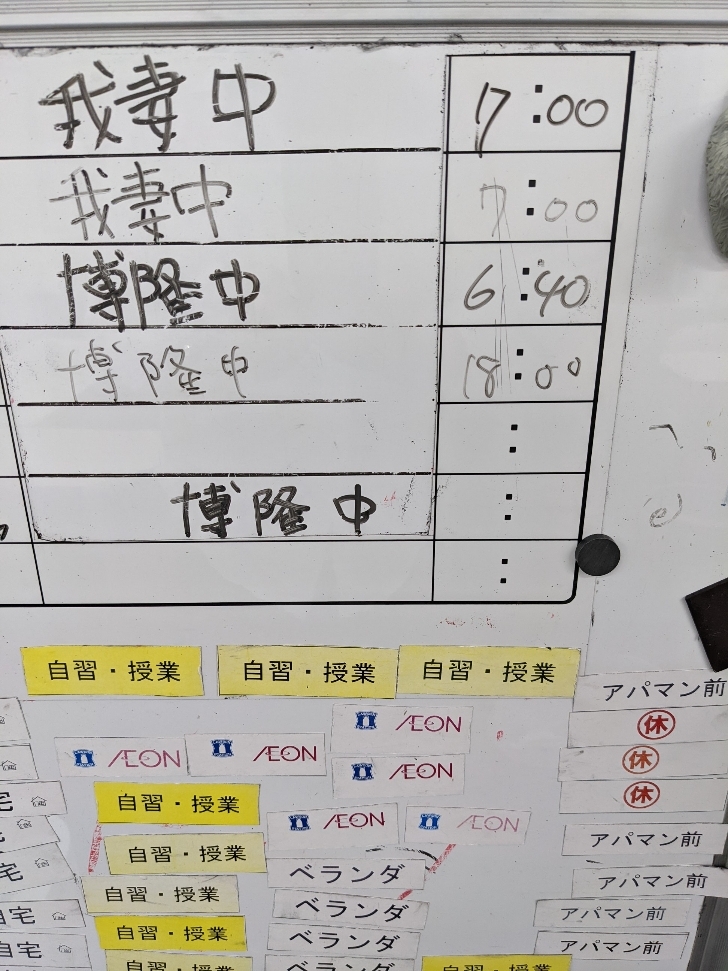 我妻中 7:00
我妻中 7:00
博隆中 6:40
博隆中 18:00
:
博隆中 :
:
自習・授業 自習・授業 自習・授業 アパマン前
ÆON 休
ÆON ÆON ÆON 休
宅 自習・授業 ÆON ÆON 休
宅 自習・授業 アパマン前
ベランダ
自習・授業 ベランダ アパマン前
自宅 自習・授業 ベランダ アパマン前
自宅 自習・授業 ベランダ 自習・授業 アパマン前